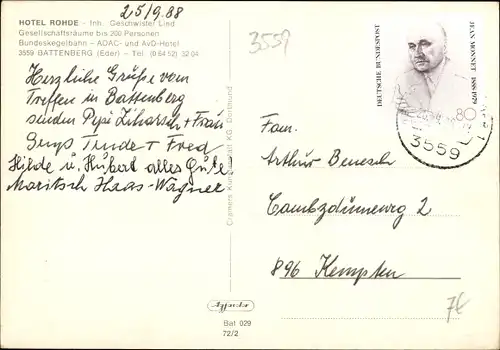 25/9.88
HOTEL ROHDE - Inh. Geschwister Lind
Gesellschaftsräume bis 200 Personen
Bundeskegelbahn – ADAC- und AvD-Hotel
3559 BATTENBERG (Eder) – Tel. (0 64 52) 32 04
Herzliche Grüße vom
Treffen in Battenberg
senden Pepi + Frau
+ Fred
Hilde u. Hubert alles Gute!
Maritsch Haas-Wagner
Cramers Kunstanstalt KG, Dortmund
Bat 029
72/2
3559
DEUTSCHE BUNDESPOST
JEAN MONNET 1888-1979
80
3559
Fam.
Arthur Benesch
2
896 Kempten
7€